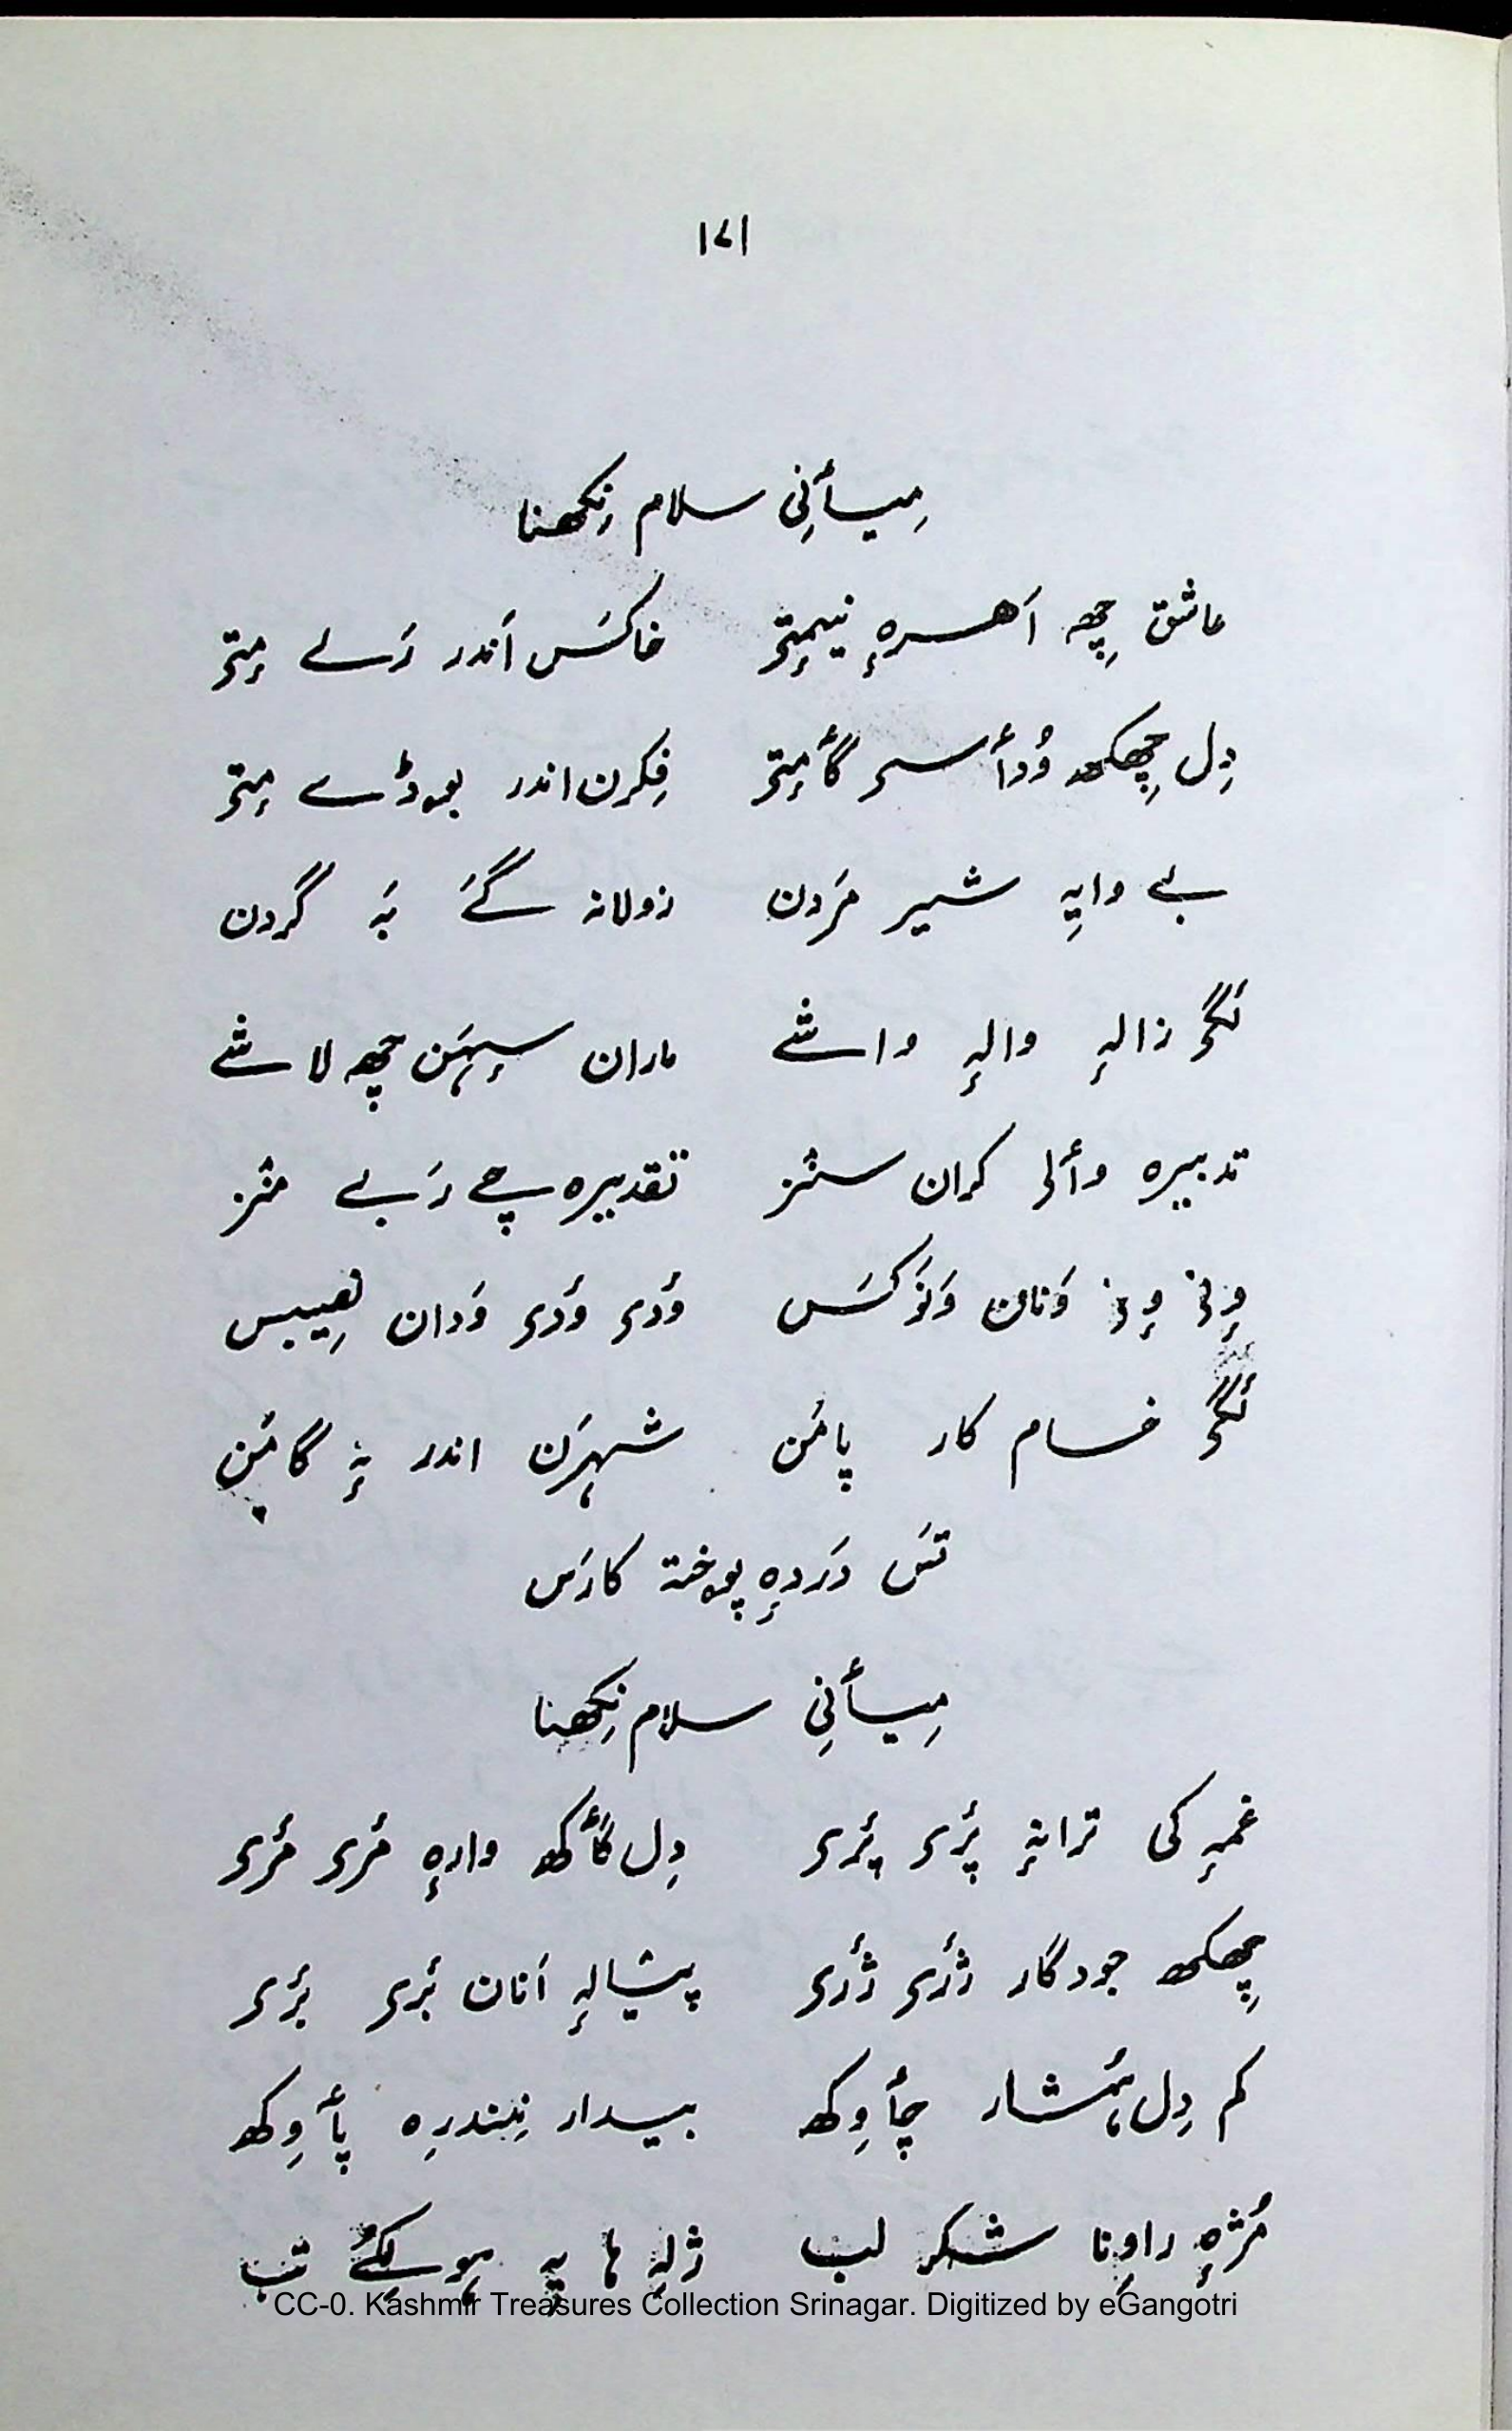 ۱۷۱
مِیأنِی سلام نِکھنا
عاشق چِھ اَھرہٕ نیمٕتۍ خاکسَس اَندر رَلے مٕتۍ
دِل چِھکھ وُدأسۍ گأمٕتۍ فِکرن اندر بوڈے مٕتۍ
بے وایہِ شیر مَردن زولانہ گےَ بَہ گردن
لٔگۍ زالہٕ والہٕ واشے ماران سہٕہَن چھ لاشے
تدبیرہ وألۍ کران سٔنز تقدیرہ چے رَبے منٛز
وٕنۍ وٕنۍ وَنان وَنَو کَسَس ؤدۍ ؤدۍ وَدان نصِیبس
لٔگۍ خام کار پامَن شہرَن اندر بہٕ گامَن
تسَ دَردہٕ پوختہ کارَس
مِیأنِی سلام نِکھنا
غمہٕ کی ترانہٕ پٔرۍ پٔرۍ دِل گأکھ وارہٕ مٔرۍ مٔرۍ
چِھکھ جودگار ژٔرۍ ژٔرۍ پیشالہٕ اَنان بٔرۍ بٔرۍ
کم دِل ہُشار چأوِکھ بیدار نِندرِہ پأوِکھ
مُژہٕ راوِنا شکر لب ژلہِ ہا یہِ تب
CC-0. Kashmir Treasures Collection Srinagar. Digitized by eGangotri